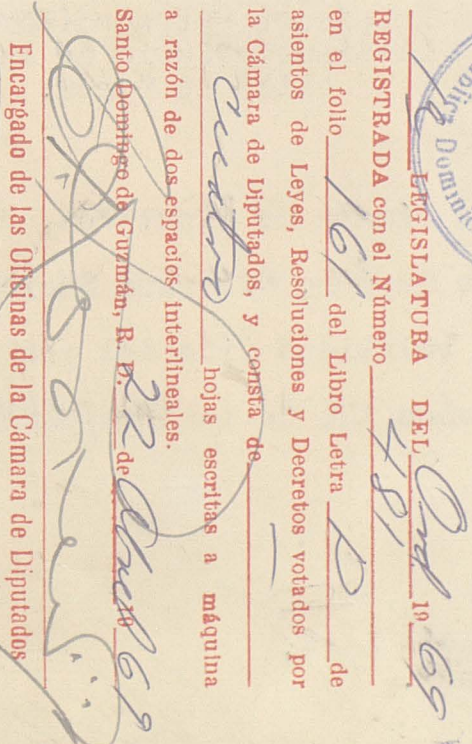 1a LEGISLATURA DEL Ord 1969
REGISTRADA con el Número 481
en el folio 161 del Libro Letra D de
asientos de Leyes, Resoluciones y Decretos votados por
la Cámara de Diputados, y consta de
cuatro hojas escritas a máquina
a razón de dos espacios interlineales.
Santo Domingo de Guzmán, R. D. 22 de Abril 1969
Encargado de las Oficinas de la Cámara de Diputados